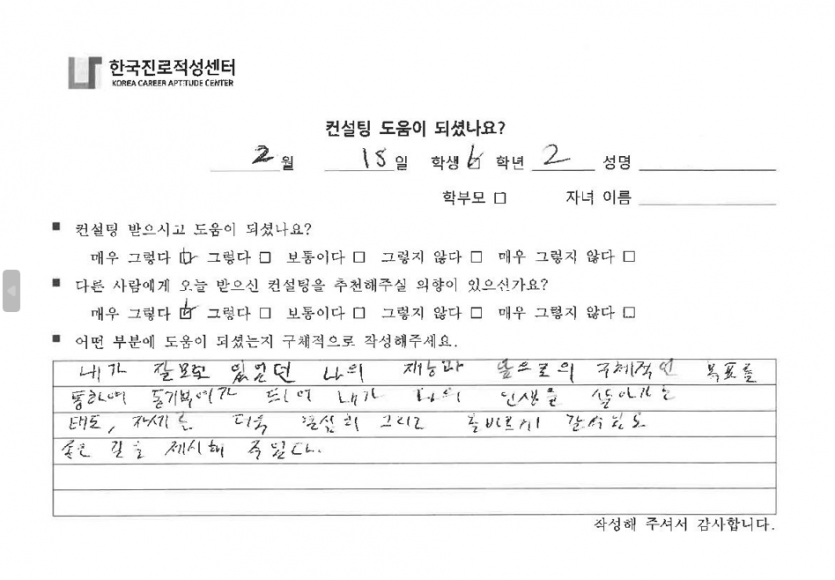 한국진로적성센터
KOREA CAREER APTITUDE CENTER
컨설팅 도움이 되셨나요?
2 월 18 일 학생 □ 학년 2 성명
학부모 □ 자녀 이름
■ 컨설팅 받으시고 도움이 되셨나요?
매우 그렇다 □ 그렇다 □ 보통이다 □ 그렇지 않다 □ 매우 그렇지 않다 □
■ 다른 사람에게 오늘 받으신 컨설팅을 추천해주실 의향이 있으신가요?
매우 그렇다 □ 그렇다 □ 보통이다 □ 그렇지 않다 □ 매우 그렇지 않다 □
■ 어떤 부분에 도움이 되셨는지 구체적으로 작성해주세요.
내가 잘 모르고 있었던 나의 재능과 앞으로의 구체적인 목표를
통하여 동기부여가 되어 내가 나의 인생을 살아가는
태도, 자세를 더욱 열심히 그리고 올바르게
좋은 길을 제시해 주었다.
작성해 주셔서 감사합니다.